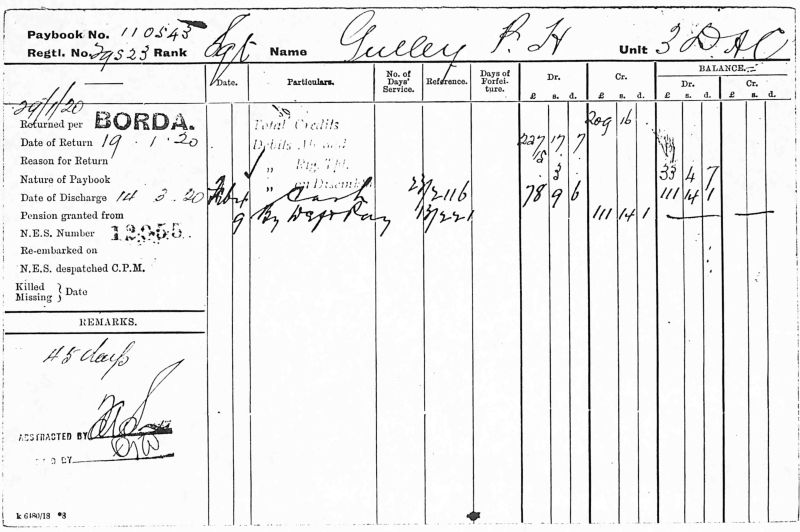 Paybook No. 110543
Regtl. No. 29523 Rank Sgt Name Gulley P. H Unit 3 DAC
Date. Particulars. No. of Days' Service. Reference. Days of Forfeiture. Dr. Cr. BALANCE.
Dr. Cr.
£ s. d. £ s. d. £ s. d. £ s. d.
29/1/20
Returned per BORDA. Total Credits 209 16
Date of Return 19.1.20 Debits Abroad 227 17 7
Reason for Return " 15
Nature of Paybook " on Disemb. 3 33 4 7
Date of Discharge 14 3.20 Feb 4 Cash 23/2116 78 9 6 111 14 1
Pension granted from 9 By Defd Pay 13/221 111 14 1
N.E.S. Number 12955
Re-embarked on
N.E.S. despatched C.P.M.
Killed
Missing } Date
REMARKS.
45 days
ABSTRACTED BY
D BY
k 6180/18 *3